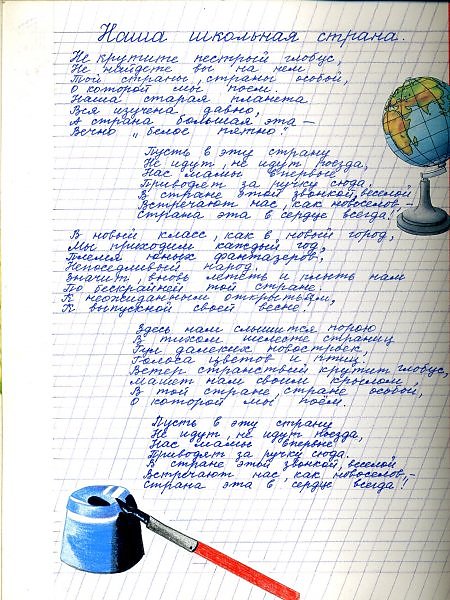 Наша школьная страна.
Не крутите пестрый глобус,
Не найдете вы на нем
Той страны, страны особой,
О которой мы поем.
Наша старая планета
Вся изучена давно,
А страна большая эта —
Вечно „белое пятно".
Пусть в эту страну
Не идут, не идут поезда,
Нас мамы впервые
Приводят за ручку сюда.
В стране этой звонкой, веселой
Встречают нас, как новоселов, —
Страна эта в сердце всегда!
В новый класс, как в новый город,
Мы приходим каждый год,
Племя юных фантазеров,
Непоседливый народ.
Значит, вновь лететь и плыть нам
По бескрайней той стране.
К неожиданным открытьям,
К выпускной своей весне.
Здесь нам слышится порою
В тихом шелесте страниц
Гул далеких новостроек,
Голоса цветов и птиц.
Ветер странствий крутит глобус,
Машет нам своим крылом,
В той стране, стране особой,
О которой мы поём.
Пусть в эту страну
Не идут, не идут поезда,
Нас мамы впервые
Приводят за ручку сюда.
В стране этой звонкой, веселой
Встречают нас, как новоселов, —
Страна эта в сердце всегда!